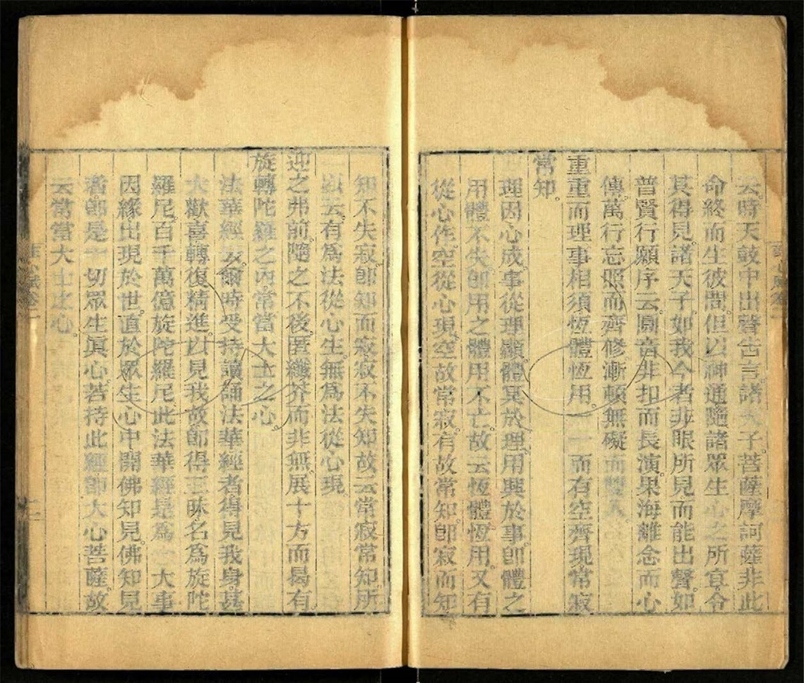 云時天鼓中出聲告言諸天子菩薩摩訶薩非此
命終而生彼間但以神通隨諸眾生心之所宜令
其得見諸天子如我今者非眼所見而能出聲如
普賢行願序云圓音非扣而長演果海離念而心
傳萬行忘照而齊修漸頓無礙而雙
重重而理事相須恆體恆用一一而有空齊現常寂
常知。
理因心成事從理顯體冥於理用興於事即體之
用體不失即用之體用不亡故云恆體恆用又有
從心作空從心現空故常寂有故常知即寂而知
知不失寂即知而寂寂不失知故云常寂常知所
以云有為法從心生無為法從心現
迎之弗前隨之不後匿纖芥而非無展十方而曷有
旋轉陀羅之內常當大士之心。
法華經云爾時受持讀誦法華經者得見我身甚
大歡喜轉復精進以見我故即得三昧名為旋陀
羅尼百千萬億旋陀羅尼此法華經是為一大事
因緣出現於世直於眾生心中開佛知見佛知見
者即是一切眾生真心若持此經即大心菩薩故
云常當大士之心。